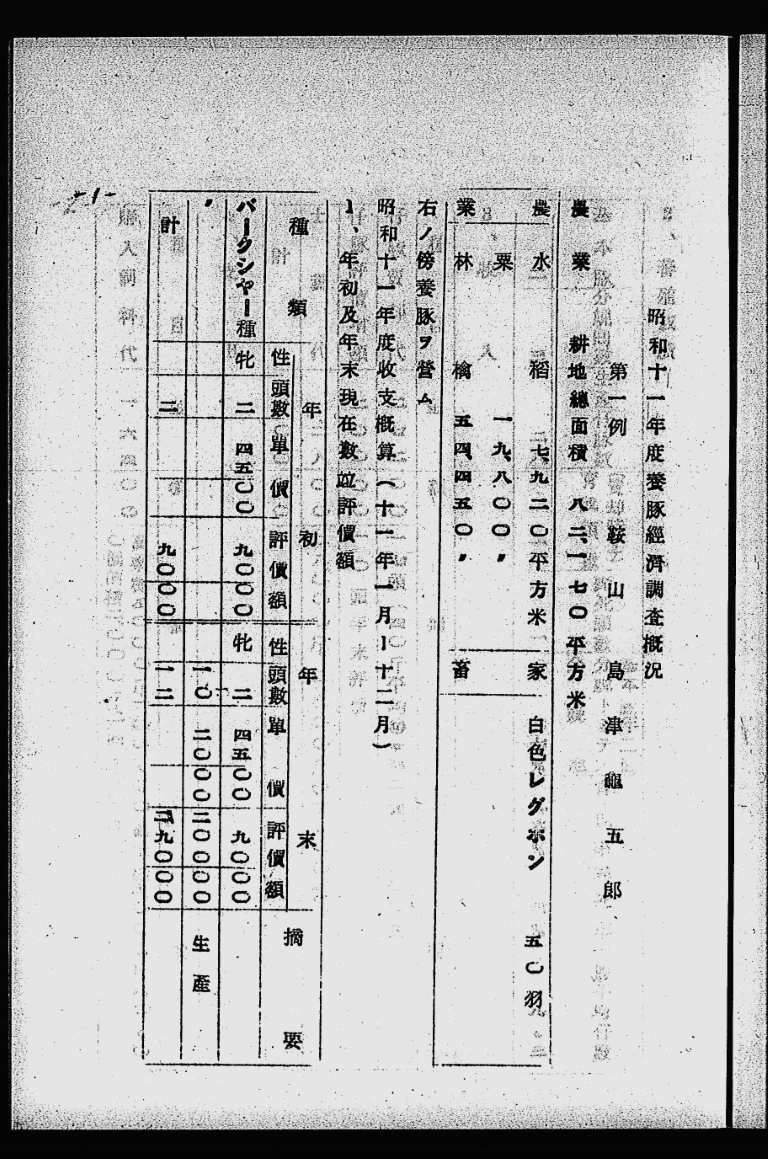 昭和十一年度養豚經濟調查概況
第一例 鞍山 島津龜五郎
農業 耕地總面積 八二、一七〇平方米
農 水稻 七、九二〇平方米 家 白色レグホン 五〇羽
粟 一九、八〇〇〃
業 林檎 五四、四五〇〃 畜
右ノ傍養豚ヲ營ム
昭和十一年度收支概算(十一年一月ー十二月)
1、年初及年末現在數竝評價額
種類 年初 年末 摘要
性 頭數 單價 評價額 性 頭數 單價 評價額
バークシャー種 牝 二 四五〇〇 九〇〇〇 牝 二 四五〇〇 九〇〇〇
〃 一〇 二〇〇〇 二〇〇〇〇 生產
計 二 九〇〇〇 一二 二九〇〇〇
-1-